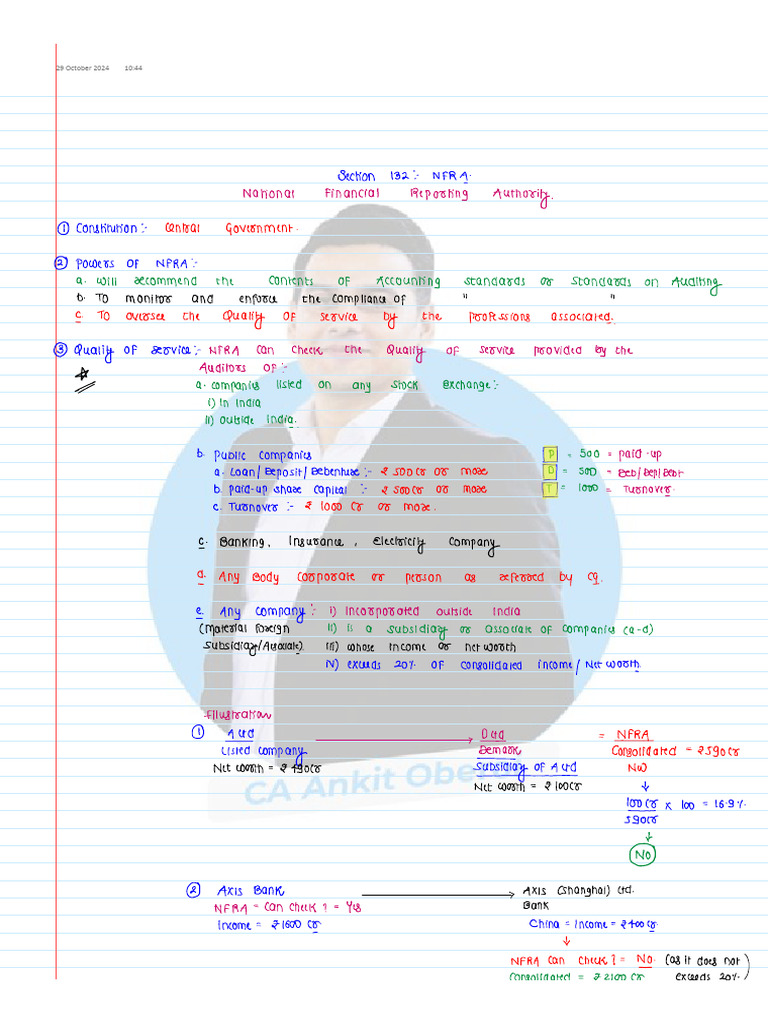 29 October 2024 10:44
Section 132 :- NFRA.
National Financial Reporting Authority.
① Constitution :- Central Government.
② Powers of NFRA :-
a. will recommend the contents of Accounting standards or standards on Auditing
b. To monitor and enforce the compliance of " "
c. To oversee the Quality of service by the professions associated.
③ Quality of service :- NFRA can check the Quality of service provided by the
Auditors of :-
a. companies listed on any stock exchange :-
i) In India
ii) outside India.
b. Public companies
a. Loan/Deposit/Debenture :- ₹ 500 cr or more
b. Paid-up share capital :- ₹ 500 cr or more
c. Turnover :- ₹ 1000 cr or more.
P = 500 = paid-up
D = 500 = Deb/Dep/Debt
T = 1000 = Turnover.
c. Banking, Insurance, Electricity company
d. Any Body corporate or person as referred by CG.
e. Any company :- i) Incorporated outside India
(Material foreign ii) is a subsidiary or associate of companies (a-d)
subsidiary/Associate) iii) whose income or net worth
iv) exceeds 20% of consolidated income/Net worth.
Illustration
① A Ltd → D Ltd = NFRA
Listed company Demark Consolidated = ₹ 590 cr
Net worth = ₹ 490 cr Subsidiary of A Ltd NW
Net worth = ₹ 100 cr ↓
100 cr x 100 = 16.9%
590 cr
↓
NO
② Axis Bank → Axis (Shanghai) Ltd.
NFRA = can check ? = Yes Bank
Income = ₹ 1600 cr China = Income = ₹ 400 cr
↓
NFRA can check ? = No. (as it does not
Consolidated = ₹ 2100 cr exceeds 20%)
CA Ankit Obero